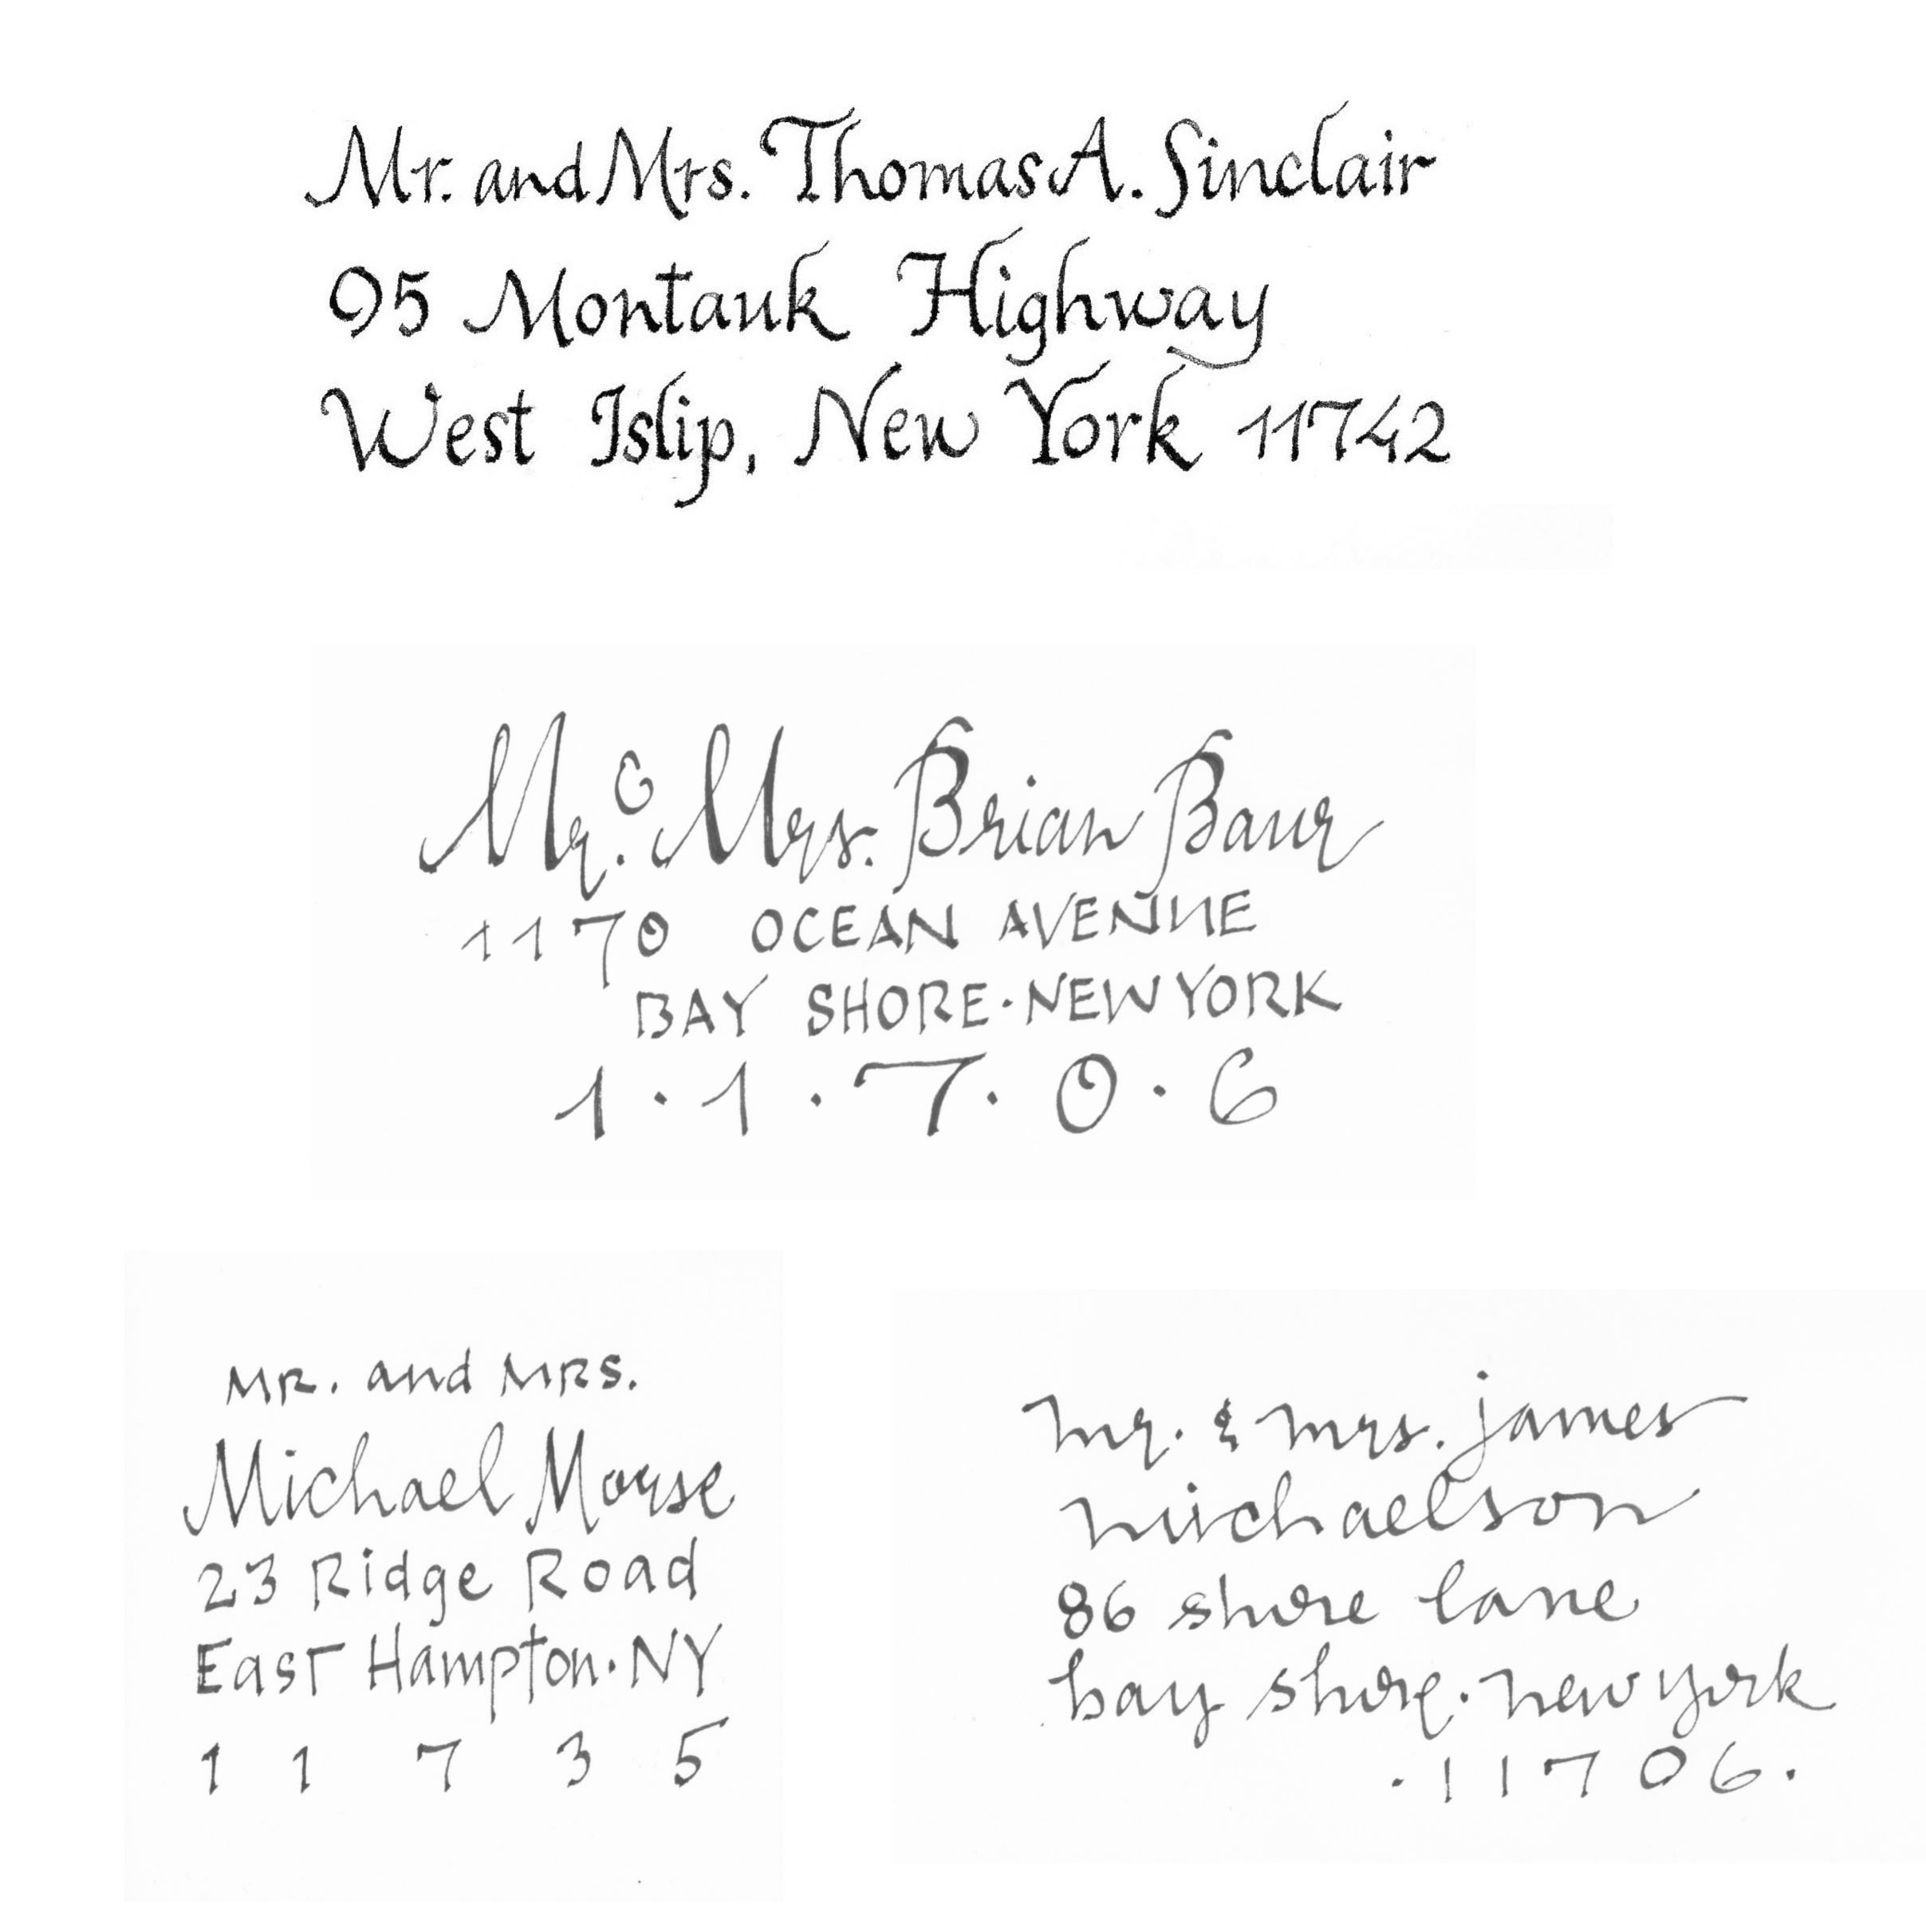 Mr. and Mrs. Thomas A. Sinclair
95 Montauk Highway
West Islip, New York 11742
Mr. & Mrs. Brian Baur
1170 OCEAN AVENUE
BAY SHORE · NEW YORK
1 · 1 · 7 · 0 · 6
MR. and MRS.
Michael Morse
23 Ridge Road
East Hampton · NY
1 1 7 3 5
mr. & mrs. james
michaelson
86 shore lane
bay shore · new york
· 11706 ·